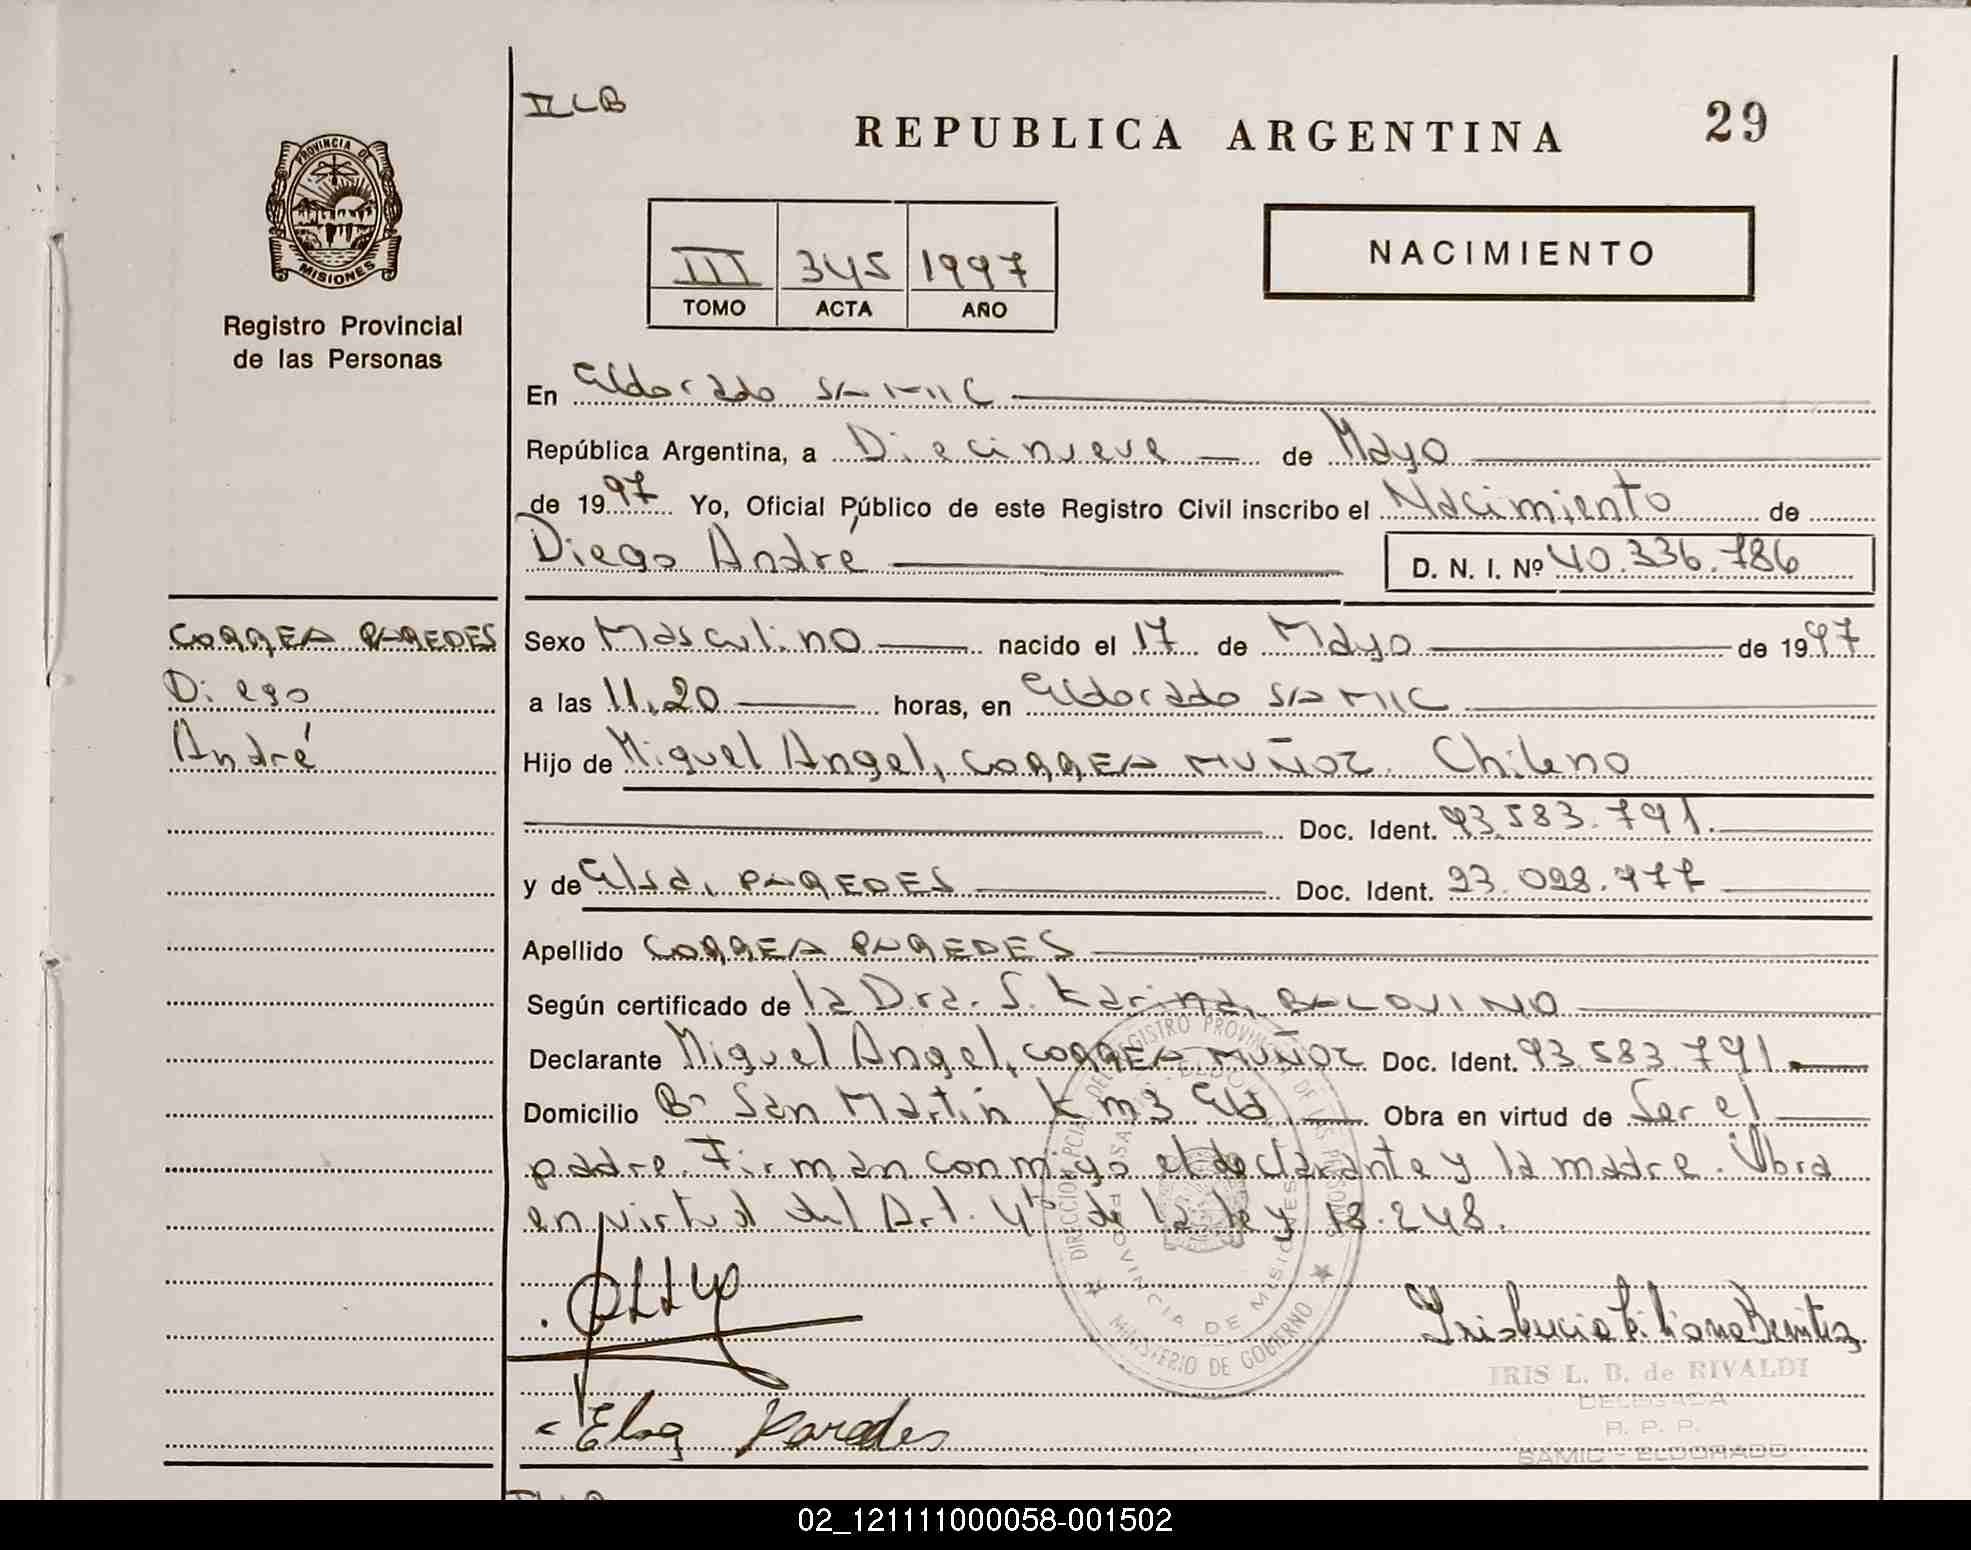 ILB
REPUBLICA ARGENTINA
29
PROVINCIA DE
MISIONES
Registro Provincial
de las Personas
III 345 1997
TOMO ACTA AÑO
NACIMIENTO
En Eldorado SAMIC
República Argentina, a Diecinueve de Mayo
de 1997 Yo, Oficial Público de este Registro Civil inscribo el Nacimiento de
Diego André
D. N. I. Nº 40.336.786
CORREA PAREDES
Diego
André
Sexo Masculino nacido el 17 de Mayo de 1997
a las 11,20 horas, en Eldorado SAMIC
Hijo de Miguel Angel, CORREA MUÑOZ. Chileno
Doc. Ident. 93.583.791.
y de Elsa, PAREDES Doc. Ident. 23.098.477
Apellido CORREA PAREDES
Según certificado de la Dra. S. Karina, BALOVINO
Declarante Miguel Angel, CORREA MUÑOZ Doc. Ident. 93.583.791.
Domicilio Bº San Martín Km3 Eld. Obra en virtud de Ser el
padre. Firman conmigo el declarante y la madre. Obra
en virtud del Art. 4to de la ley 18.248.
DIRECCION PCIAL DEL REGISTRO PROVINCIAL DE LAS PERSONAS
PROVINCIA DE MISIONES
MINISTERIO DE GOBIERNO
Elsa Paredes
IRIS L. B. de RIVALDI
DELEGADA
R. P. P.
SAMIC - ELDORADO
02_121111000058-001502